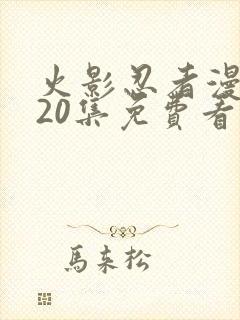 火影忍者漫
20集免費看
馬来松